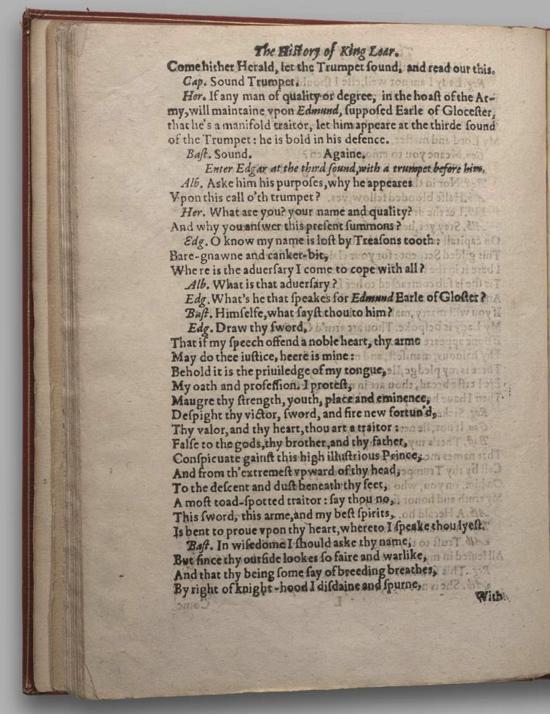 The History of King Lear.
Come hither Herald, let the Trumpet sound, and read out this.
Cap. Sound Trumpet.
Her. If any man of quality or degree, in the hoast of the Ar-
my, will maintaine vpon Edmund, supposed Earle of Glocester,
that he's a manifold traitor, let him appeare at the thirde sound
of the Trumpet: he is bold in his defence.
Bast. Sound. Againe.
Enter Edgar at the third sound, with a trumpet before him.
Alb. Aske him his purposes, why he appeares
Vpon this call o'th trumpet?
Her. What are you? your name and quality?
And why you answer this present summons?
Edg. O know my name is lost by Treasons tooth:
Bare-gnawne and canker-bit,
Where is the aduersary I come to cope with all?
Alb. What is that aduersary?
Edg. What's he that speakes for Edmund Earle of Gloster?
Bast. Himselfe, what sayst thou to him?
Edg. Draw thy sword,
That if my speech offend a noble heart, thy arme
May do thee iustice, heere is mine:
Behold it is the priuiledge of my tongue,
My oath and profession. I protest,
Maugre thy strength, youth, place and eminence,
Despight thy victor, sword, and fire new fortun'd,
Thy valor, and thy heart, thou art a traitor:
False to the gods, thy brother, and thy father,
Conspicuate gainst this high illustrious Prince,
And from th'extremest vpward of thy head,
To the descent and dust beneath thy feet,
A most toad-spotted traitor: say thou no,
This sword, this arme, and my best spirits,
Is bent to proue vpon thy heart, whereto I speake thou lyest.
Bast. In wisedome I should aske thy name,
But since thy outside lookes so faire and warlike,
And that thy being some say of breeding breathes,
By right of knight-hood I disdaine and spurne,
With